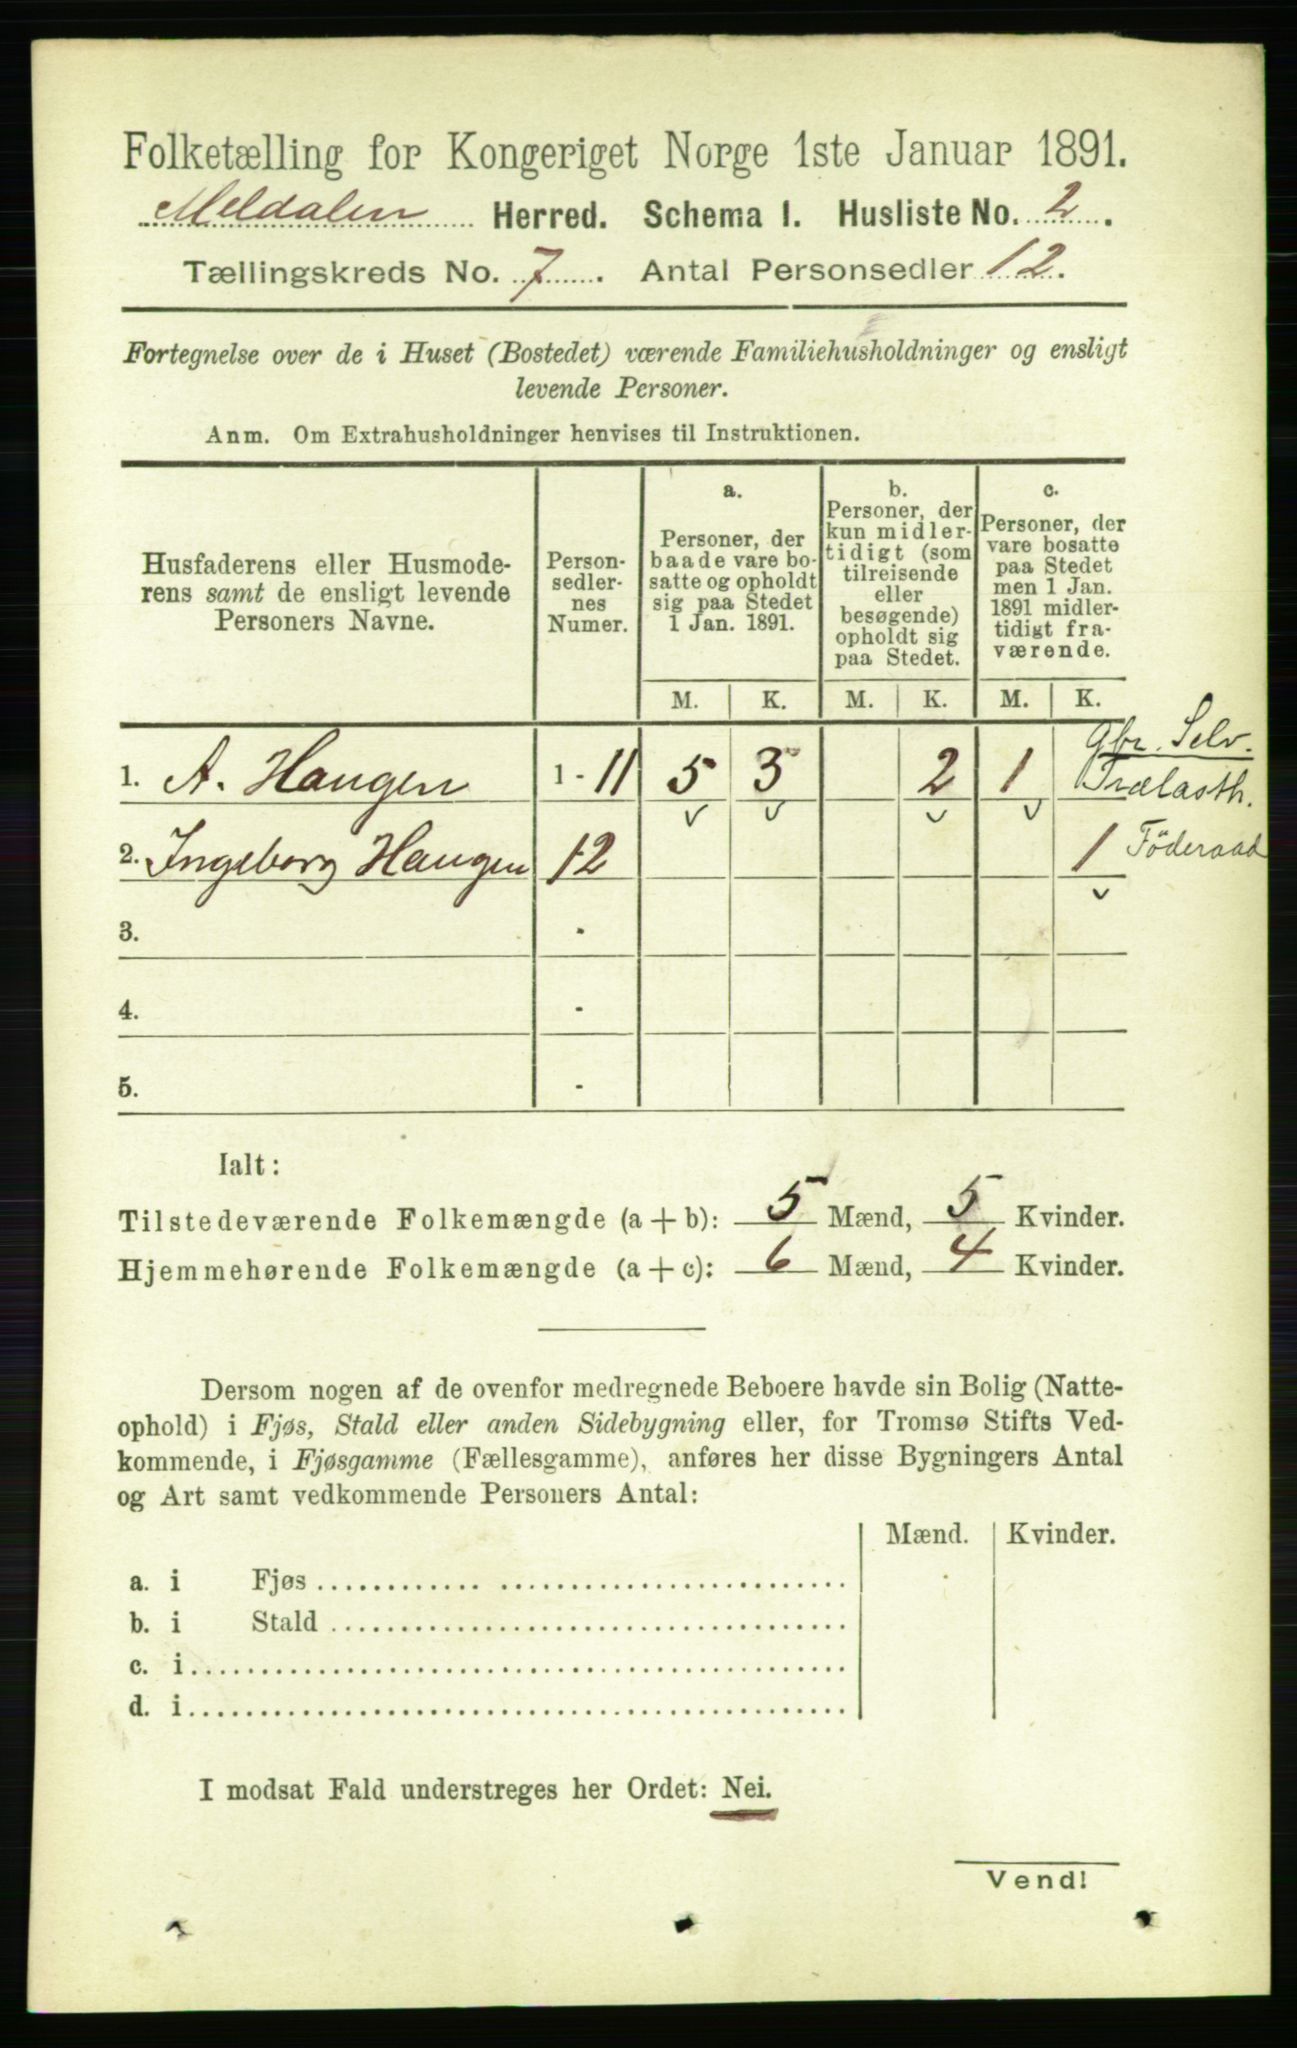 Folketælling for Kongeriget Norge 1ste Januar 1891.
Meldalen Herred. Schema 1. Husliste No. 2.
Tællingskreds No. 7. Antal Personsedler 12.
Fortegnelse over de i Huset (Bostedet) værende Familiehusholdninger og ensligt
levende Personer.
Anm. Om Extrahusholdninger henvises til Instruktionen.
Husfaderens eller Husmode-
rens samt de ensligt levende
Personers Navne.
Person-
sedler-
nes
Numer.
a.
Personer, der
baade vare bo-
satte og opholdt
sig paa Stedet
1 Jan. 1891.
b.
Personer, der
kun midler-
tidigt (som
tilreisende
eller
besøgende)
opholdt sig
paa Stedet.
c.
Personer, der
vare bosatte
paa Stedet
men 1 Jan.
1891 midler-
tidigt fra-
værende.
M. K. M. K. M. K.
Gbr. Selv.
1. A. Haugen 1 - 11 5 3 2 1 Trælasth.
2. Ingeborg Haugen 12 1 Föderaad
3. -
4. -
5. -
Ialt:
Tilstedeværende Folkemængde (a + b): 5 Mænd, 5 Kvinder.
Hjemmehørende Folkemængde (a + c): 6 Mænd, 4 Kvinder.
Dersom nogen af de ovenfor medregnede Beboere havde sin Bolig (Natte-
ophold) i Fjøs, Stald eller anden Sidebygning eller, for Tromsø Stifts Ved-
kommende, i Fjøsgamme (Fællesgamme), anføres her disse Bygningers Antal
og Art samt vedkommende Personers Antal:
Mænd. Kvinder.
a. i Fjøs
b. i Stald
c. i
d. i
I modsat Fald understreges her Ordet: Nei.
Vend!